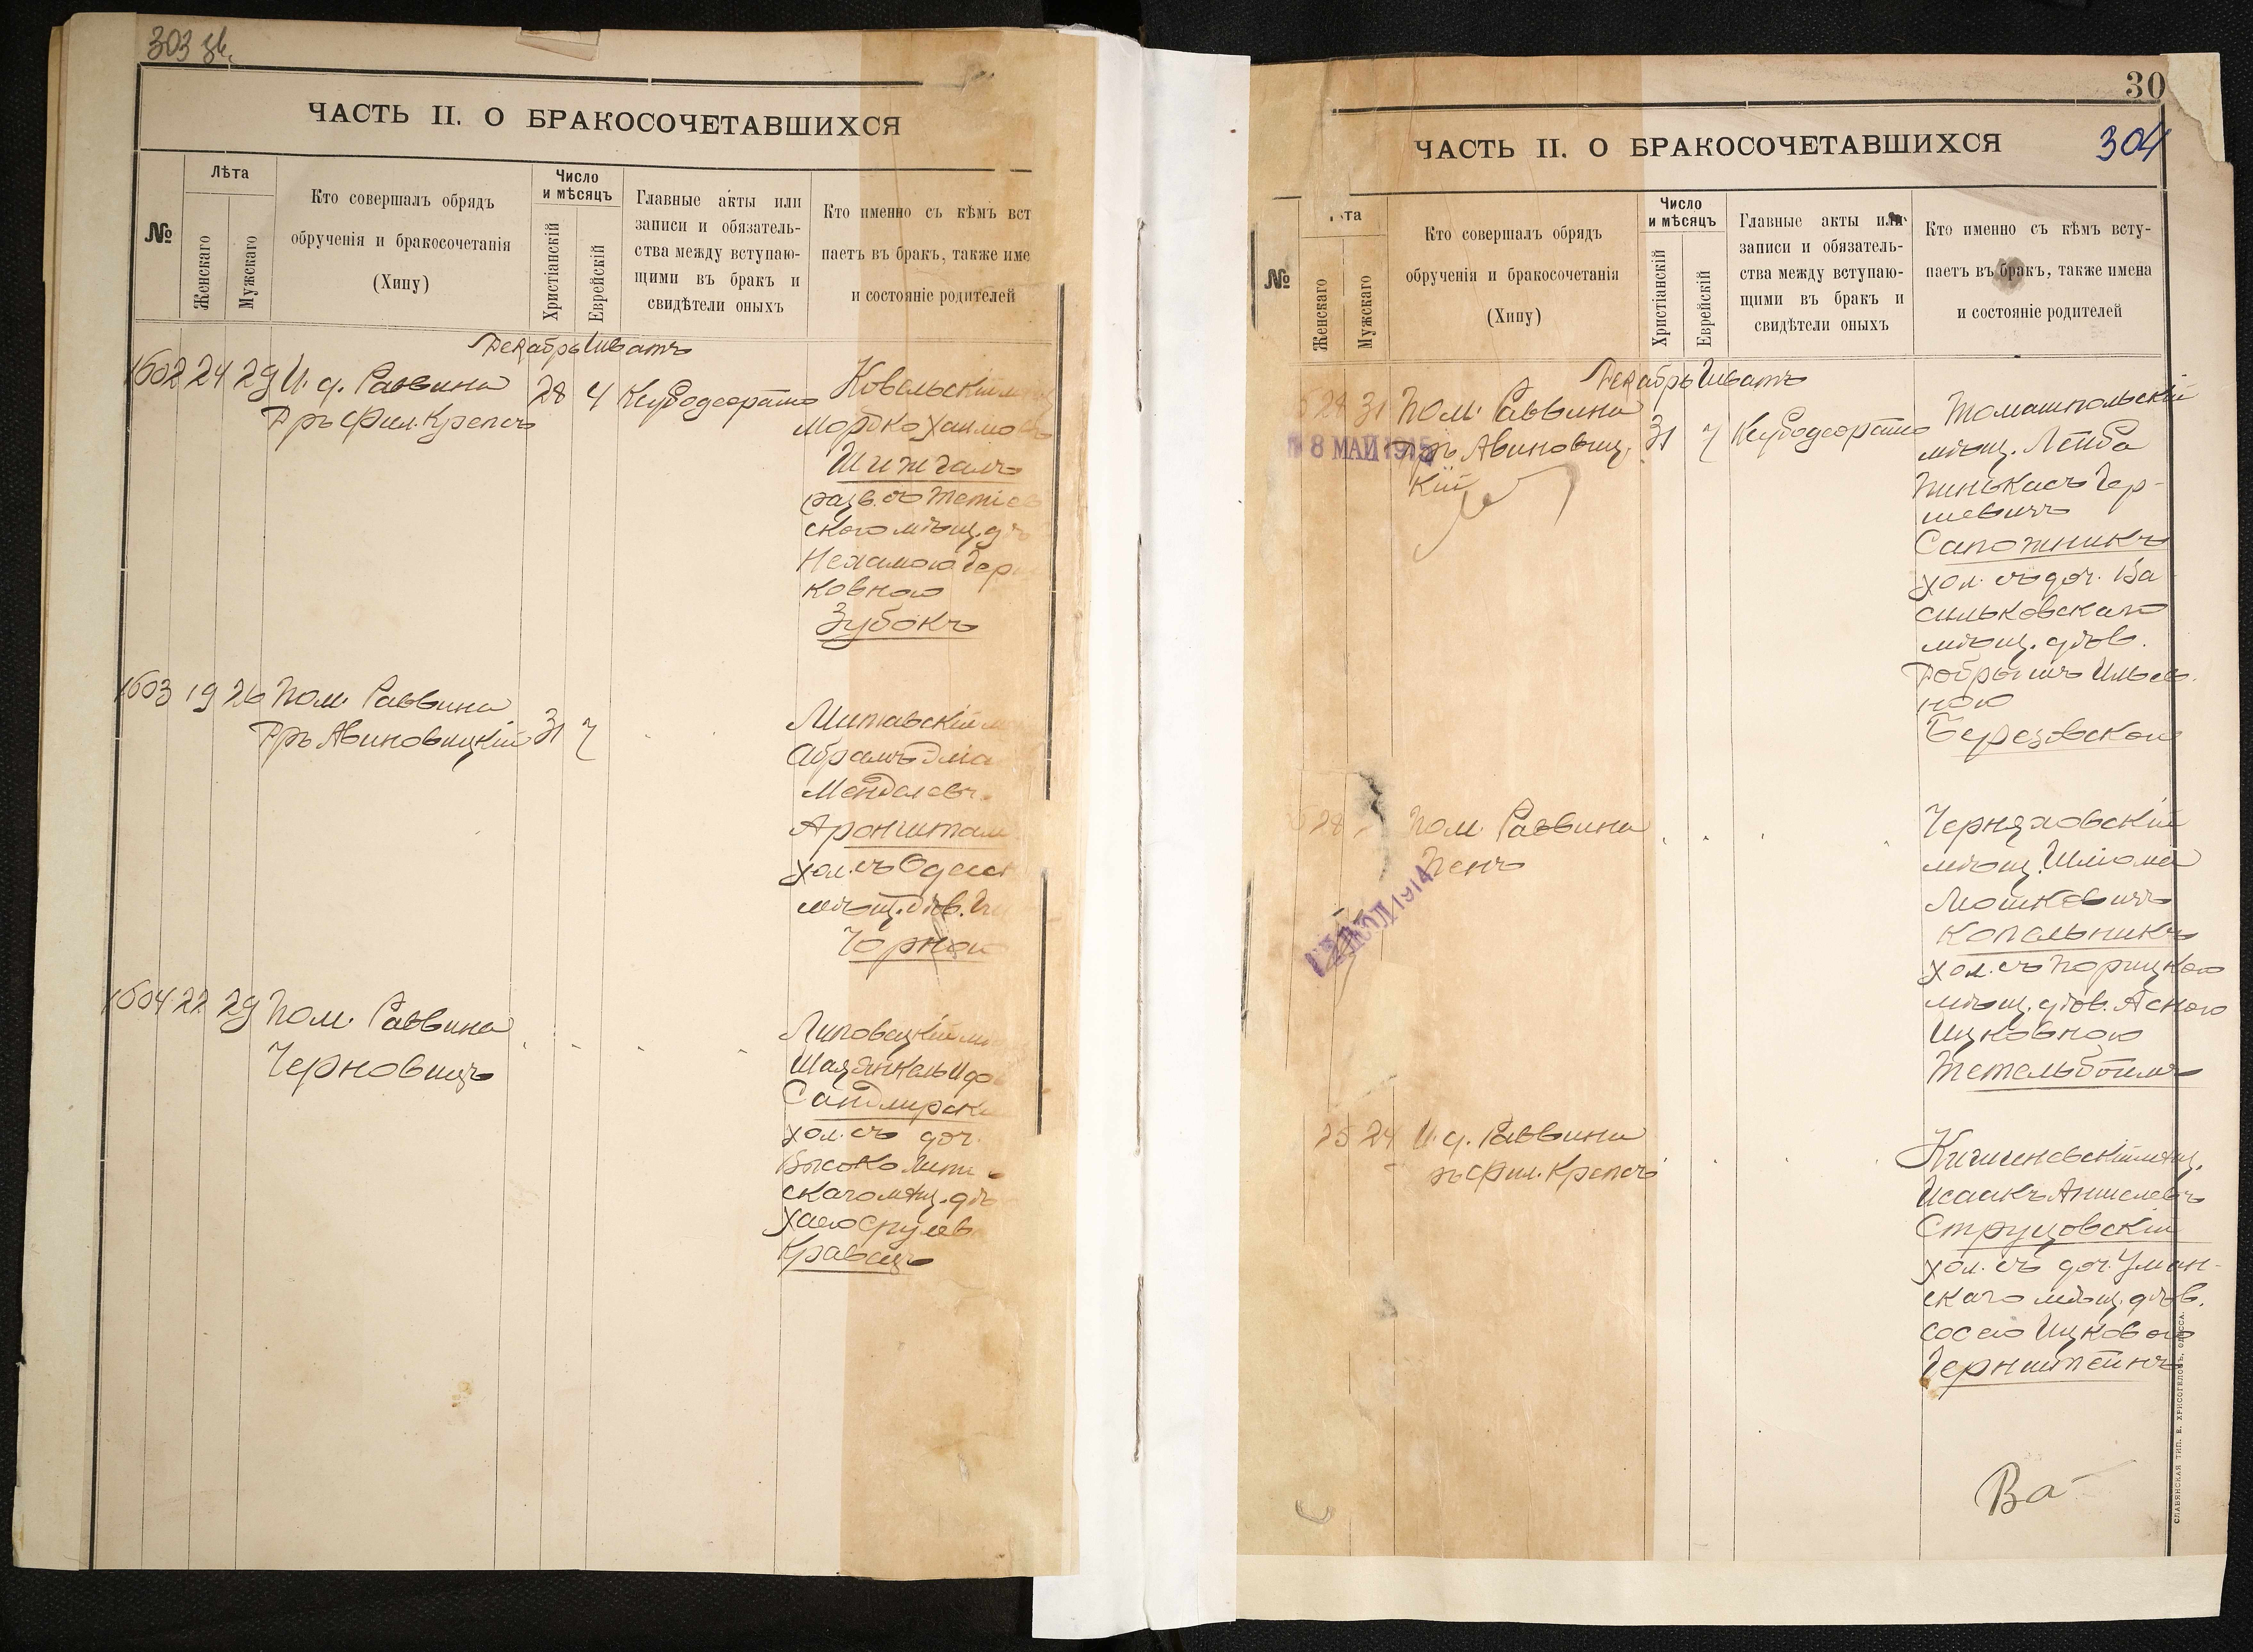 303 зв.
ЧАСТЬ II. О БРАКОСОЧЕТАВШИХСЯ
№
Лѣта
Женскаго
Мужскаго
Кто совершалъ обрядъ
обрученія и бракосочетанія
(Хипу)
Число
и мѣсяцъ
Христіанскій
Еврейскій
Главные акты или
записи и обязатель-
ства между вступаю-
щими въ бракъ и
свидѣтели оныхъ
Кто именно съ кѣмъ вст
паетъ въ бракъ, также име
и состояніе родителей
Декабрь Шватъ
1602 24 29 И. д. Раввина 28 4
Дръ Фил. Крепсъ
Ковельскій
Мордко Хаимо
Шижгалъ
разв. съ Тетіев
скаго мѣщ. д
Нехамою Гер
ковною
Зубокъ
1603 19 26 Пом. Раввина
Дръ Авиновицкій 31 7
Митавскій
Абрамъ Эліа
Менделев.
Аронштам
хол. съ Одесс
мѣщ. дѣв.
Чорною
1604 22 29 Пом. Раввина
Черновицъ
Липовецкій
Шая Янкель
Сандлерск
хол. съ доч.
Высоко
скаго мѣщ. дѣ
Хаею Срулев
Кравецъ
30
304
ЧАСТЬ II. О БРАКОСОЧЕТАВШИХСЯ
№
та
Женскаго
Мужскаго
Кто совершалъ обрядъ
обрученія и бракосочетанія
(Хипу)
Число
и мѣсяцъ
Христіанскій
Еврейскій
Главные акты или
записи и обязатель-
ства между вступаю-
щими въ бракъ и
свидѣтели оныхъ
Кто именно съ кѣмъ всту-
паетъ въ бракъ, также имена
и состояніе родителей
Декабрь Шватъ
28 31 Пом. Раввина
Дръ Авиновиц. 31 7
кій
8 МАЙ 1915
Томашпольскій
мѣщ. Лейба
Пинькасъ Гер-
шевичъ
Сапожникъ
хол. съ доч. Ва
сильковскаго
мѣщ. дѣв.
Добрышъ Ильев.
ною
Березовскою
28 Пом. Раввина
Пенъ
1914
Черняховскій
мѣщ. Шліома
Мошковичъ
Копельникъ
хол. съ Порицкою
мѣщ. дѣв. Асною
Ицковною
Тетельбоймъ
25 24 И. д. Раввина
ръ Фил. Крепсъ
Кишиневскій мѣщ.
Исаакъ Аншелевъ
Струцовскій
хол. съ доч. Уман-
скаго мѣщ. дѣв.
Сосею Ицковою
Гернштейнъ
Ва
СЛАВЯНСКАЯ ТИП. Е. ХРИСОГЕЛОСЪ, ОДЕССА.